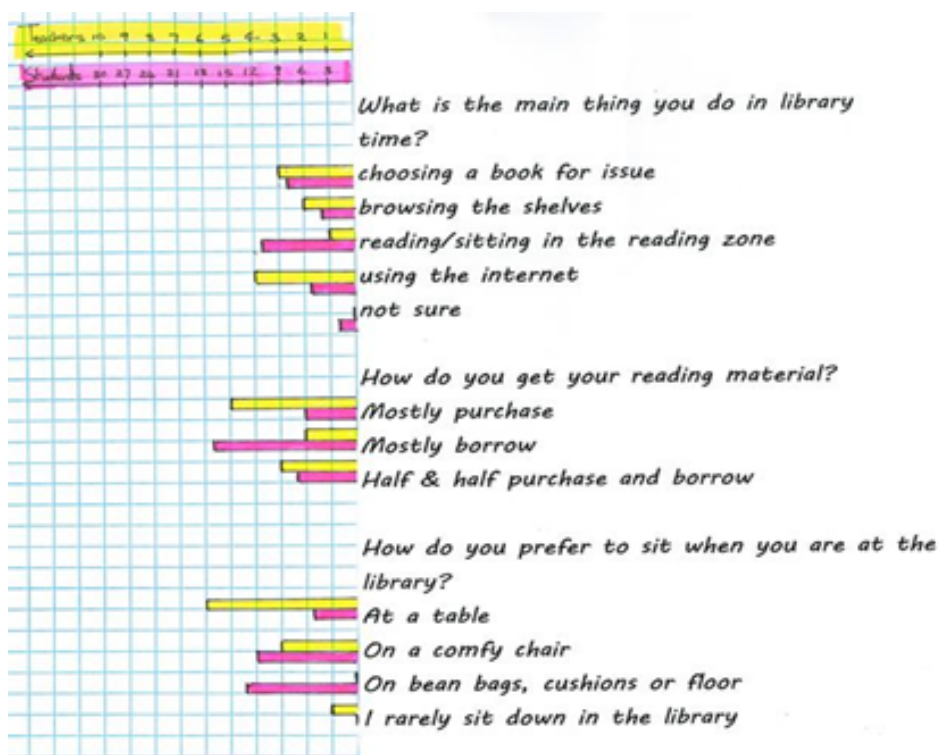 Teachers 10 9 8 7 6 5 4 3 2 1
Students 30 27 24 21 18 15 12 9 6 3
What is the main thing you do in library
time?
choosing a book for issue
browsing the shelves
reading/sitting in the reading zone
using the internet
not sure
How do you get your reading material?
Mostly purchase
Mostly borrow
Half & half purchase and borrow
How do you prefer to sit when you are at the
library?
At a table
On a comfy chair
On bean bags, cushions or floor
I rarely sit down in the library